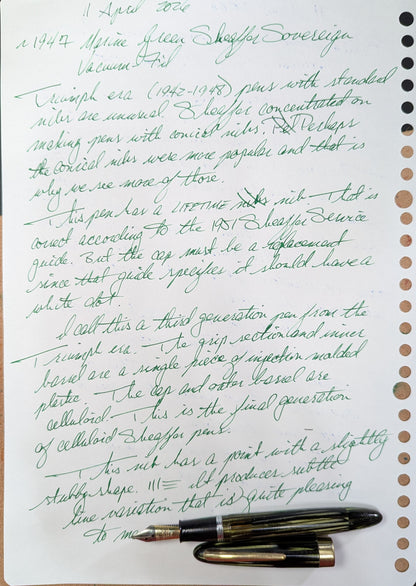 11 April 2026
~1947 Marine Green Sheaffer Sovereign
Vacuum-Fil
Triumph era (1942-1948) pens with standard
nibs are unusual. Sheaffer concentrated on
making pens with conical nibs. Perhaps
the conical nibs were more popular and that is
why we see more of those.
This pen has a LIFETIME nib. That is
correct according to the 1951 Sheaffer Service
guide. But the cap must be a replacement
since that guide specifies it should have a
white dot.
I call this a third generation pen from the
Triumph era. The grip section and inner
barrel are a single piece of injection molded
plastic. The cap and outer barrel are
celluloid. This is the final generation
of celluloid Sheaffer pens.
This nib has a point with a slightly
stubby shape. It produces subtle
line variation that is quite pleasing
to me